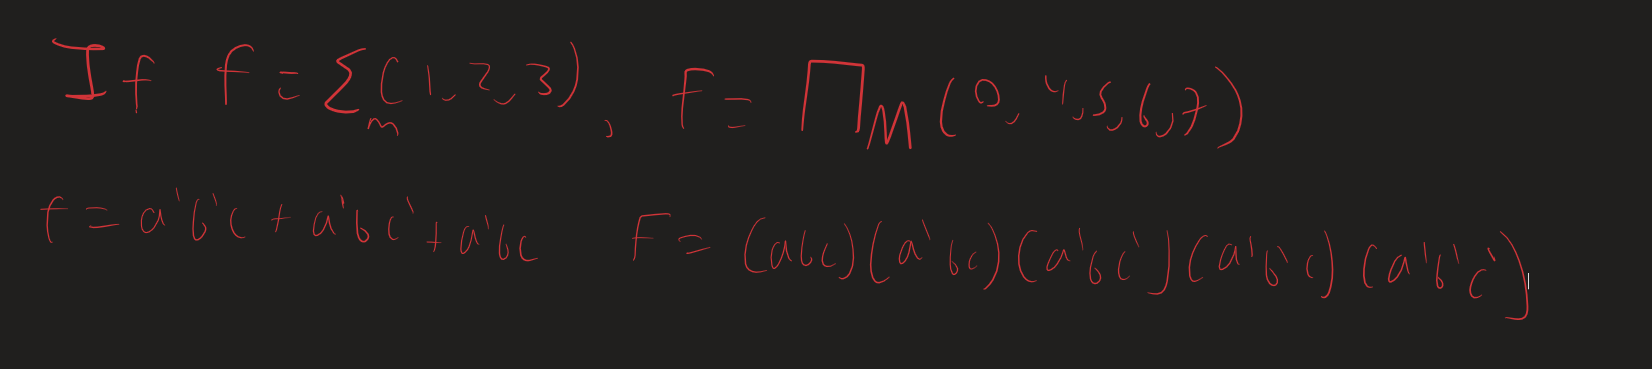 If f = Σm(1,2,3), F = ΠM(0,4,5,6,7)
f = a'b'c + a'bc' + a'bc F = (abc)(a'bc)(a'bc')(a'b'c)(a'b'c')